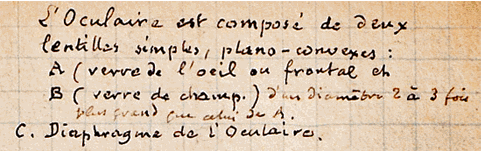 L'Oculaire est composé de deux
lentilles simples, plano-convexes :
A (verre de l'oeil ou frontal et
B (verre de champ.) d'un diamètre 2 à 3 fois
plus grand que celui de A.
C. Diaphragme de l'Oculaire.